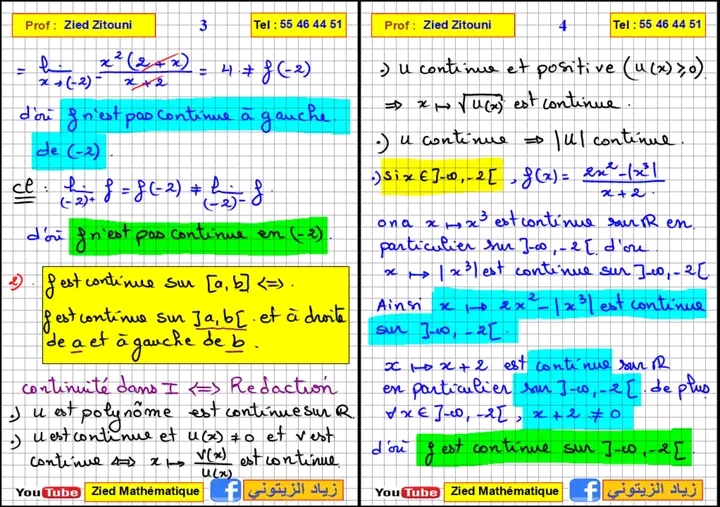 Prof : Zied Zitouni
3
Tel : 55 46 44 51
= lim x→(-2)⁻ x²(2+x)/x+2 = 4 ≠ f(-2)
d'où f n'est pas continue à gauche
de (-2)
cl : lim (-2)⁺ f = f(-2) ≠ lim (-2)⁻ f
d'où f n'est pas continue en (-2)
2) f est continue sur [a,b] <=>
f est continue sur ]a,b[ et à droite
de a et à gauche de b.
continuité dans I <=> Redaction
.) u est polynôme est continue sur ℝ
.) u est continue et u(x) ≠ 0 et v est
continue <=> x ↦ v(x)/u(x) est continue
You Tube
Zied Mathématique
f
زياد الزيتوني
Prof : Zied Zitouni
4
Tel : 55 46 44 51
.) u continue et positive (u(x) ≥ 0)
⇒ x ↦ √u(x) est continue.
.) u continue ⇒ |u| continue.
.) si x ∈ ]-∞,-2[ , f(x) = 2x²-|x³|/x+2
on a x ↦ x³ est continue sur ℝ en
particulier sur ]-∞,-2[ d'où
x ↦ |x³| est continue sur ]-∞,-2[
Ainsi x ↦ 2x²-|x³| est continue
sur ]-∞,-2[.
x ↦ x+2 est continue sur ℝ
en particulier sur ]-∞,-2[ de plus
∀x ∈ ]-∞,-2[ , x+2 ≠ 0
d'où f est continue sur ]-∞,-2[
You Tube
Zied Mathématique
f
زياد الزيتوني